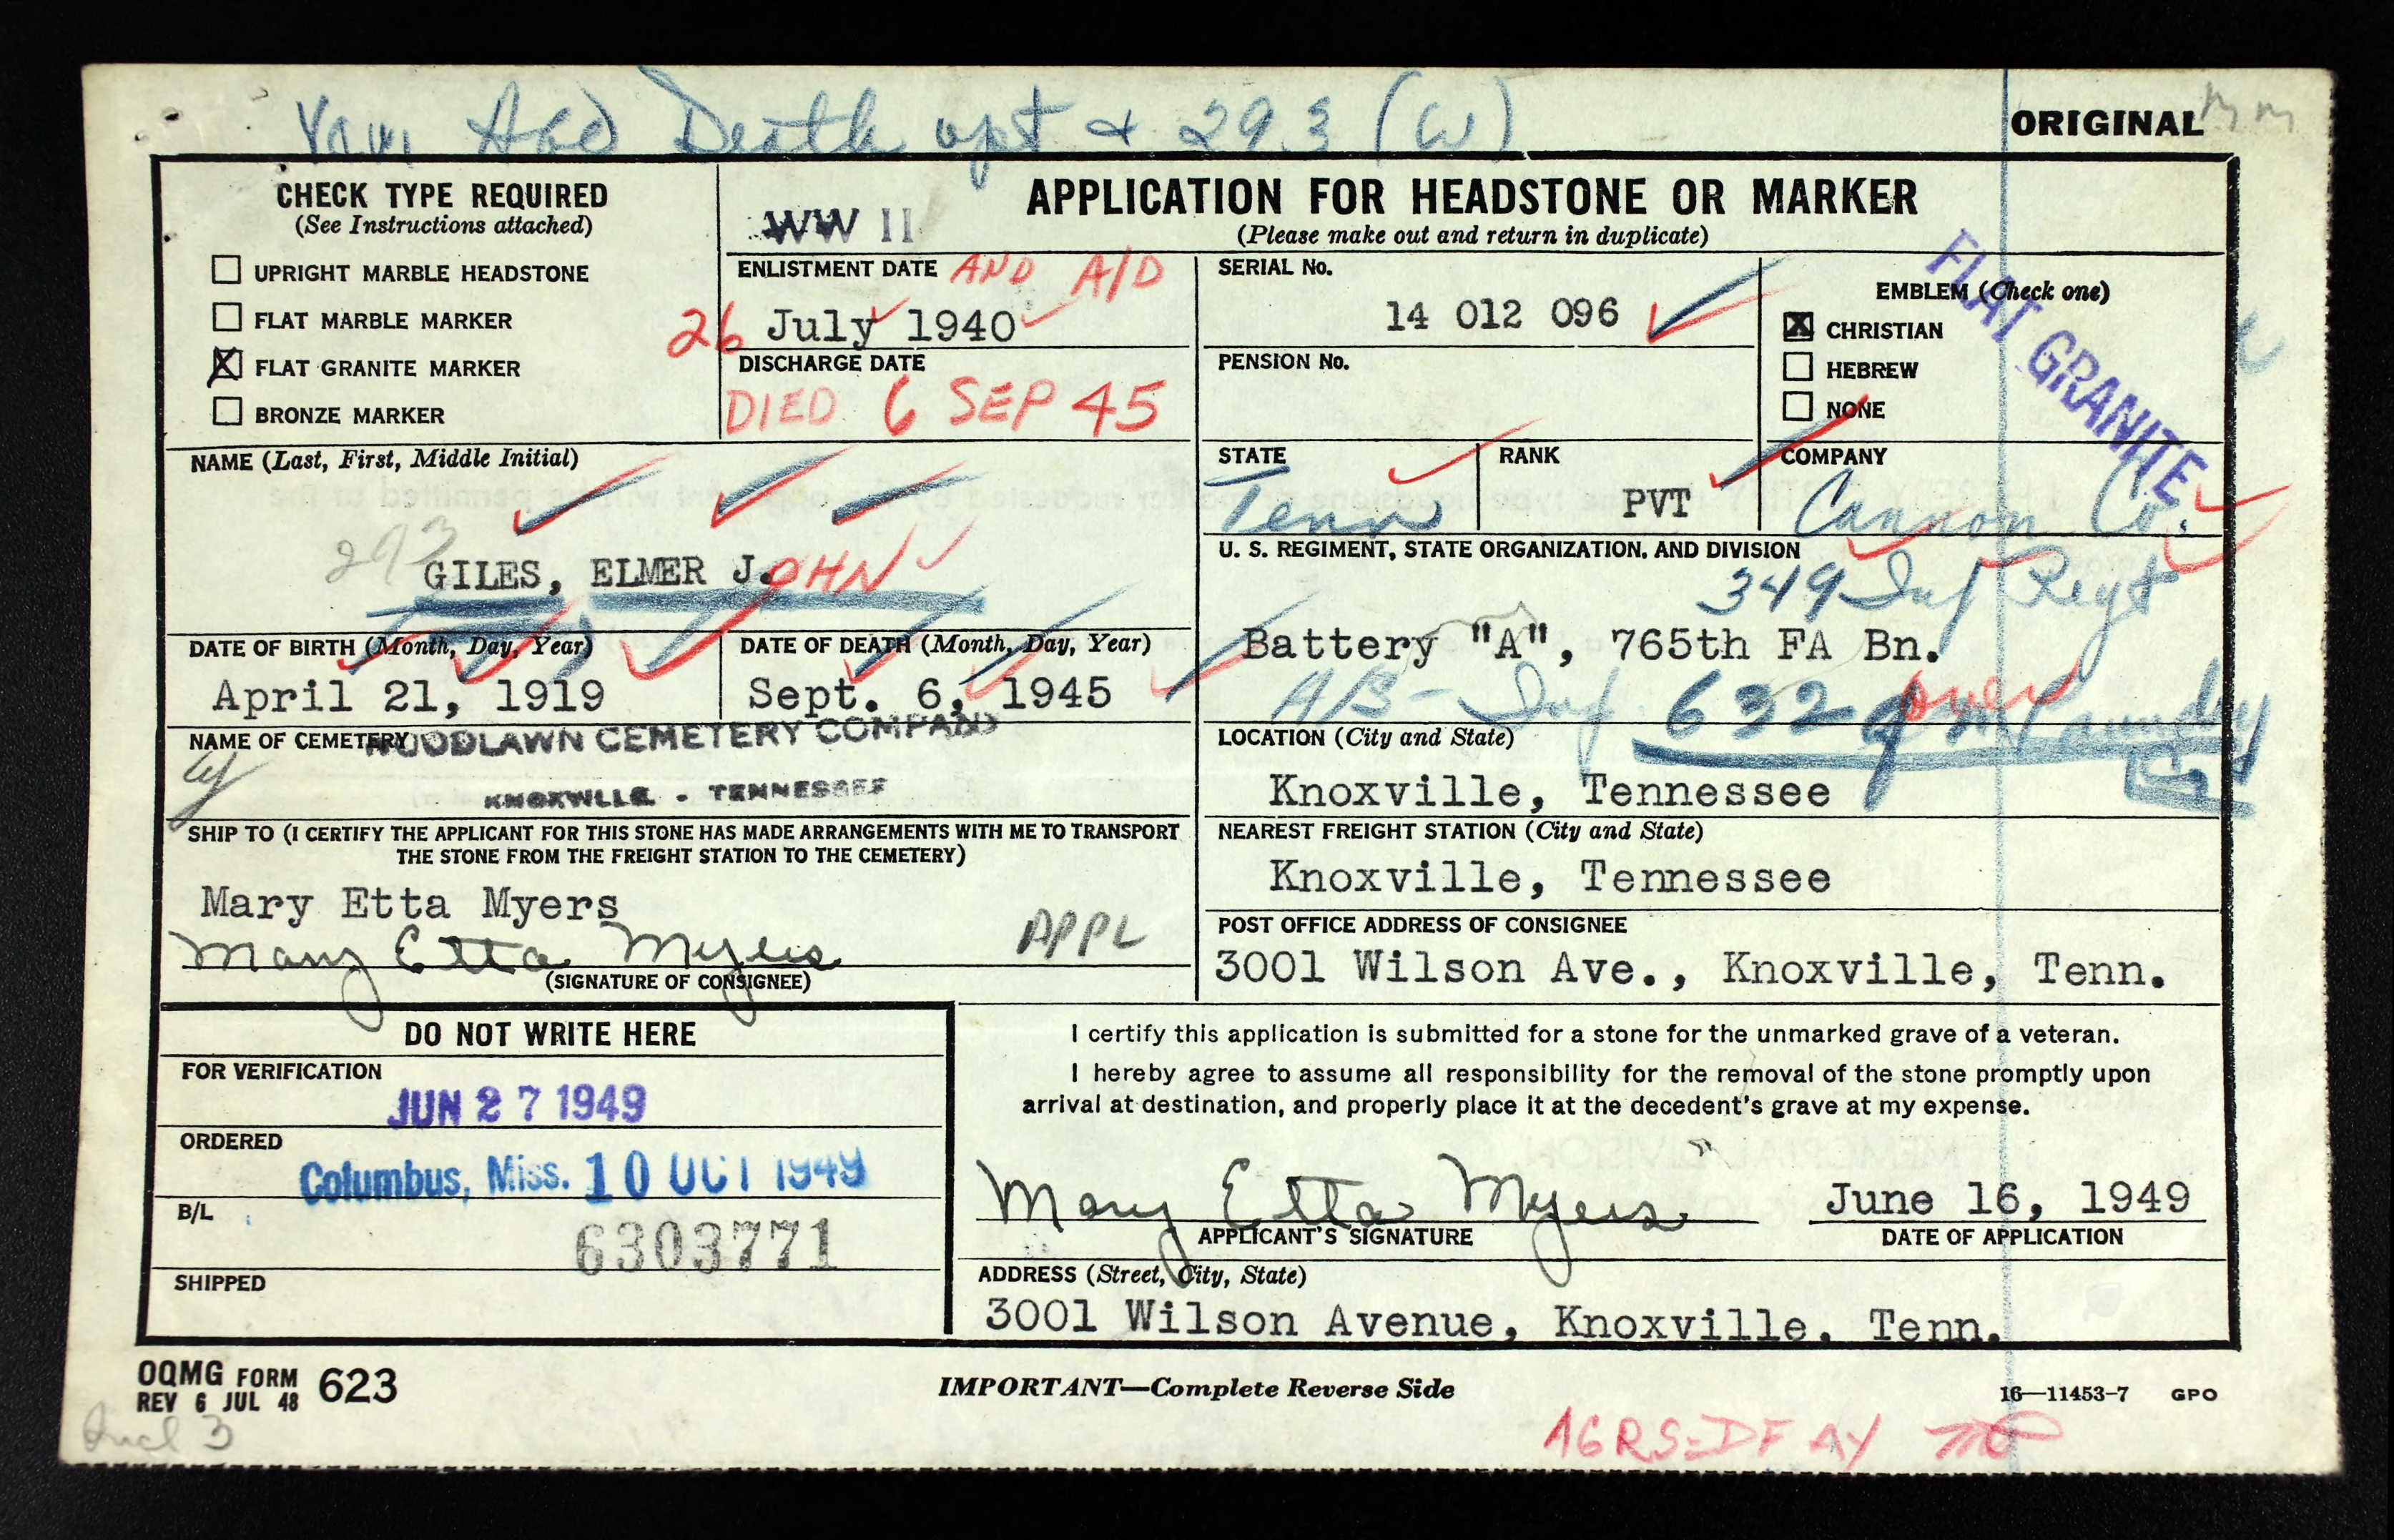 Death rpt & 293 (W)
ORIGINAL
CHECK TYPE REQUIRED
(See Instructions attached)
UPRIGHT MARBLE HEADSTONE
FLAT MARBLE MARKER
X FLAT GRANITE MARKER
BRONZE MARKER
WW II
APPLICATION FOR HEADSTONE OR MARKER
(Please make out and return in duplicate)
ENLISTMENT DATE AND A/D
26 July 1940
DISCHARGE DATE
DIED 6 SEP 45
SERIAL No.
14 012 096
PENSION No.
EMBLEM (Check one)
X CHRISTIAN
HEBREW
NONE
FLAT GRANITE
NAME (Last, First, Middle Initial)
293
GILES, ELMER J.OHN
STATE
Tenn
RANK
PVT
COMPANY
Cannon Co.
U. S. REGIMENT, STATE ORGANIZATION, AND DIVISION
349 Inf Regt
Battery "A", 765th FA Bn.
632 over
DATE OF BIRTH (Month, Day, Year)
April 21, 1919
DATE OF DEATH (Month, Day, Year)
Sept. 6, 1945
NAME OF CEMETERY
WOODLAWN CEMETERY COMPANY
KNOXVILLE - TENNESSEE
LOCATION (City and State)
Knoxville, Tennessee
SHIP TO (I CERTIFY THE APPLICANT FOR THIS STONE HAS MADE ARRANGEMENTS WITH ME TO TRANSPORT
THE STONE FROM THE FREIGHT STATION TO THE CEMETERY)
Mary Etta Myers
Mary Etta Myers
APPL
(SIGNATURE OF CONSIGNEE)
NEAREST FREIGHT STATION (City and State)
Knoxville, Tennessee
POST OFFICE ADDRESS OF CONSIGNEE
3001 Wilson Ave., Knoxville, Tenn.
DO NOT WRITE HERE
FOR VERIFICATION
JUN 27 1949
ORDERED
Columbus, Miss. 10 OCT 1949
B/L
6303771
SHIPPED
I certify this application is submitted for a stone for the unmarked grave of a veteran.
I hereby agree to assume all responsibility for the removal of the stone promptly upon
arrival at destination, and properly place it at the decedent's grave at my expense.
Mary Etta Myers
APPLICANT'S SIGNATURE
June 16, 1949
DATE OF APPLICATION
ADDRESS (Street, City, State)
3001 Wilson Avenue, Knoxville, Tenn.
OQMG FORM 623
REV 6 JUL 48
IMPORTANT—Complete Reverse Side
16—11453-7 GPO
Incl 3